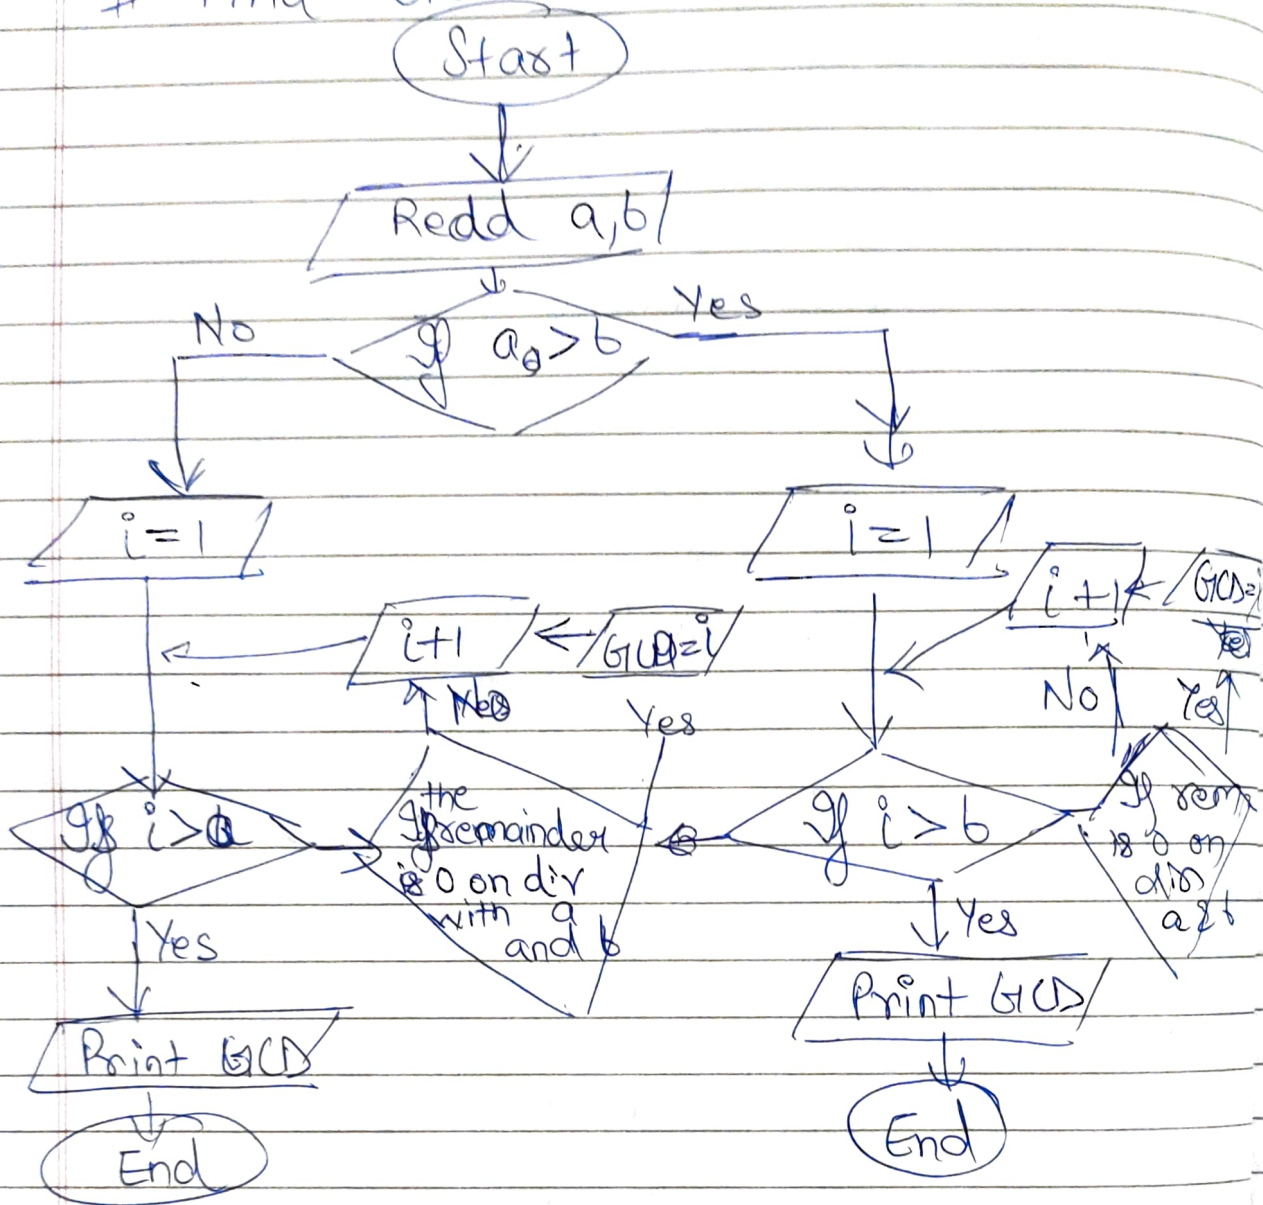 # Find
Start
Redd a,b
No
If a > b
Yes
i=1
i=1
i+1
GCD=i
i+1
GCD=i
No
Yes
No
Yes
If i>a
the
If remainder
is 0 on div
with a
and b
If i > b
If rem
is 0 on
div
a & b
Yes
Yes
Print GCD
Print GCD
End
End